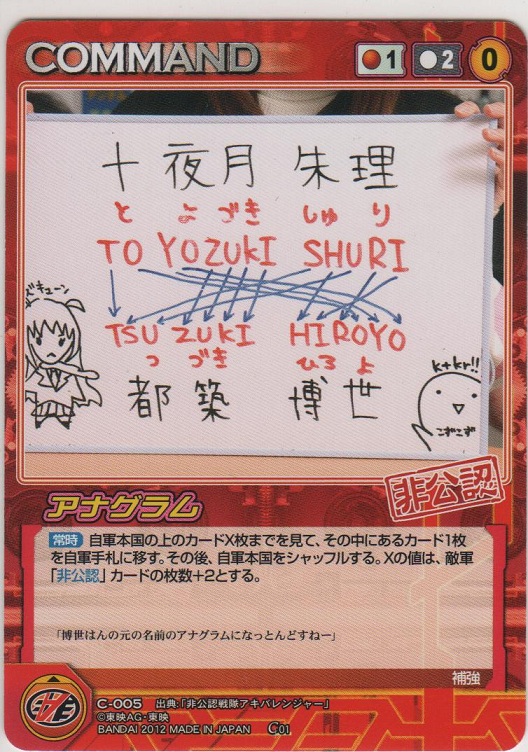 COMMAND
1 2 0
十夜月 朱理
と よ づき しゅ り
TO YOZUKI SHURI
ズキューン
TSU ZUKI HIROYO
つ づき ひろ よ
都築 博世
k+kr!!
こずこず
非公認
アナグラム
常時 自軍本国の上のカードX枚までを見て、その中にあるカード1枚
を自軍手札に移す。その後、自軍本国をシャッフルする。Xの値は、敵軍
「非公認」カードの枚数+2とする。
「博世はんの元の名前のアナグラムになっとんどすねー」
補強
C-005 出典:「非公認戦隊アキバレンジャー」
©東映AG・東映
BANDAI 2012 MADE IN JAPAN C01